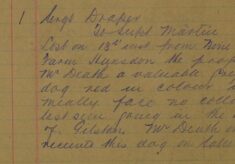 1 Sergt Draper
To Supt Martin
Lost on 13th inst from Nine
Farm Hunsdon the prop
Mr Death a valuable
dog red in colour
face no colla
last seen going in the
of Gilston Mr Death
receive this dog